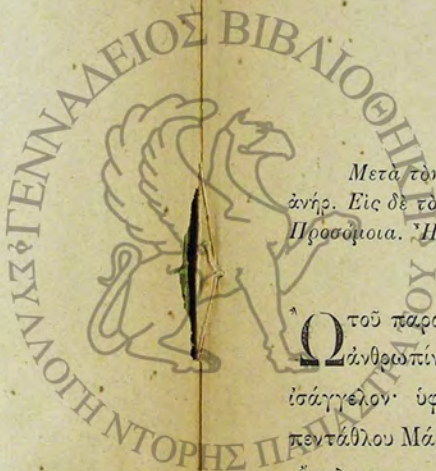 ΓΕΝΝΑΔΕΙΟΣ ΒΙΒΛΙΟΘΗΚΗ
ΣΥΛΛΟΓΗ ΝΤΟΡΗΣ ΠΑΠΑΣΤΡΑΤΟΥ
Μετὰ τὸν
ἀνήρ. Εἰς δὲ τὸ
Προσόμοια. Ἦ
Ὢ τοῦ παρα
ἀνθρωπίν
ἰσάγγελον· ὑφ
πεντάθλου Μά